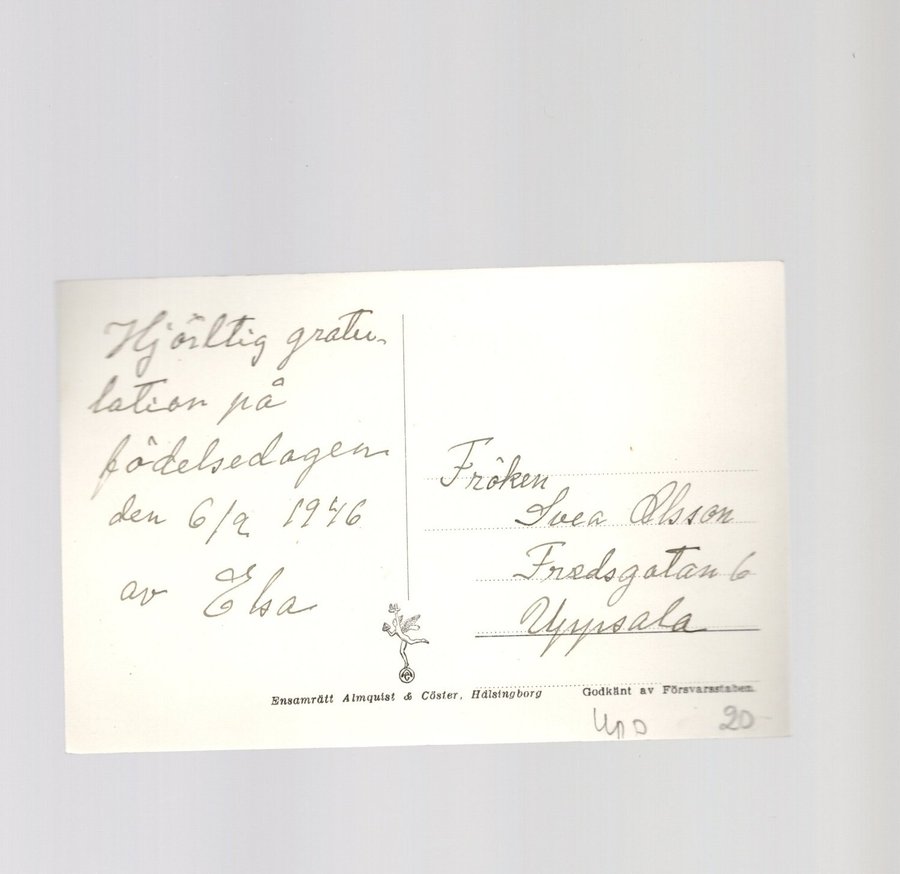 Hjärtlig gratu-
lation på
födelsedagen
den 6/9 1946
av Elsa
Fröken
Svea Olsson
Fredsgatan 6
Uppsala
Ensamrätt Almquist & Cöster, Hälsingborg
Godkänt av Försvarsstaben.
Upp 20